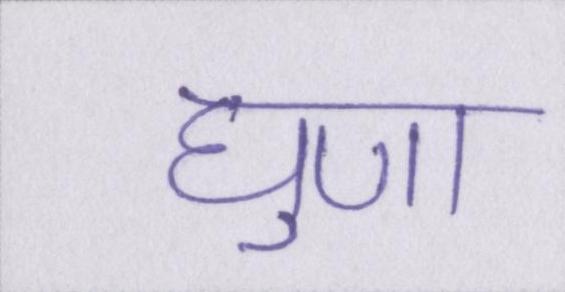 घुणा